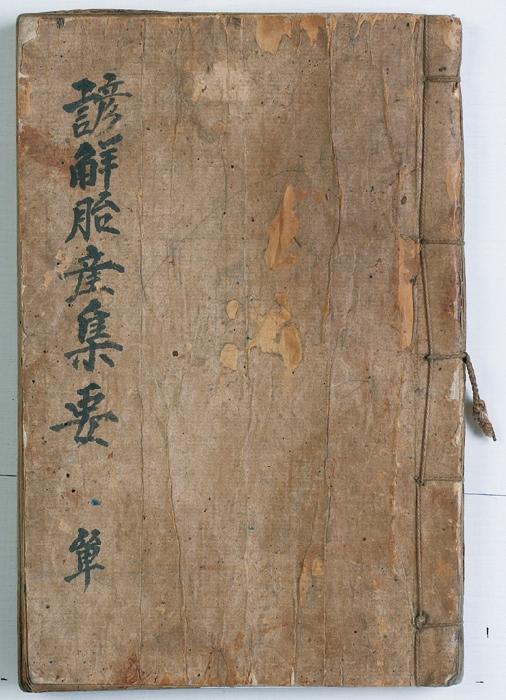 諺解胎産集要 單